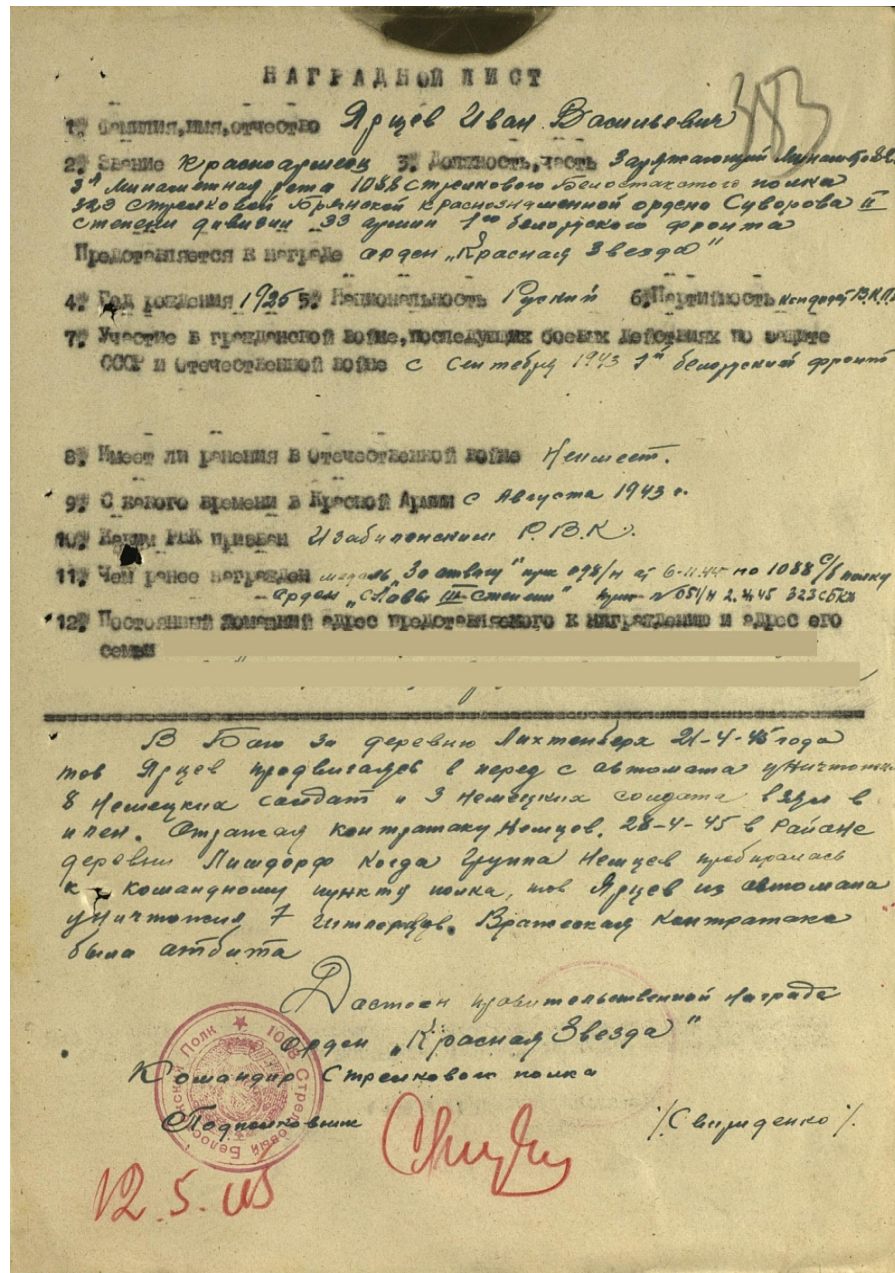 НАГРАДНОЙ ЛИСТ
383
1. Фамилия, имя, отчество Ярцев Иван Васильевич
2. Звание Красноармеец 3. Должность, часть Заряжающий
3й Минометная рота 1088 Стрелкового Белостакского полка
323 Стрелковой Брянской Краснознаменной ордена Суворова II
степени дивизии 33 армии 1го белорусского фронта
Представляется к награде орден „Красная Звезда"
4. Год рождения 1925 5. Национальность Руский 6. Партийность
7. Участие в гражданской войне, последующих боевых действиях по защите
СССР и отечественной войне с сентября 1943 1й белорусский фронт
8. Имеет ли ранения в отечественной войне Неимеет.
9. С какого времени в Красной Армии с Августа 1943 г.
10. Каким РВК призван Р.В.К.
11. Чем ранее награжден медаль „За отвагу" 098/н от по 1088 с/п полку
орден „Славы III степени" 323
12. Постоянный домашний адрес представляемого к награждению и адрес его
семьи
В Бою за деревню Лихтенберх 21-4-45 года
тов Ярцев продвигаясь в перед с автомата уничтожил
8 Немецких солдат и 3 Немецких солдата взял в
плен. Отражая контратаку Немцев. 28-4-45 в Районе
деревни когда группа Немцев пробиралась
к командному пункту полка, тов Ярцев из автомата
уничтожил 7 Вражеская контратака
была атбита
Достоен правительственной награда
орден „Красная Звезда"
Командир Стрелкового полка
Подполковник /Свириденко/.
1088 Стрелковый Белостокский Полк
12.5.45